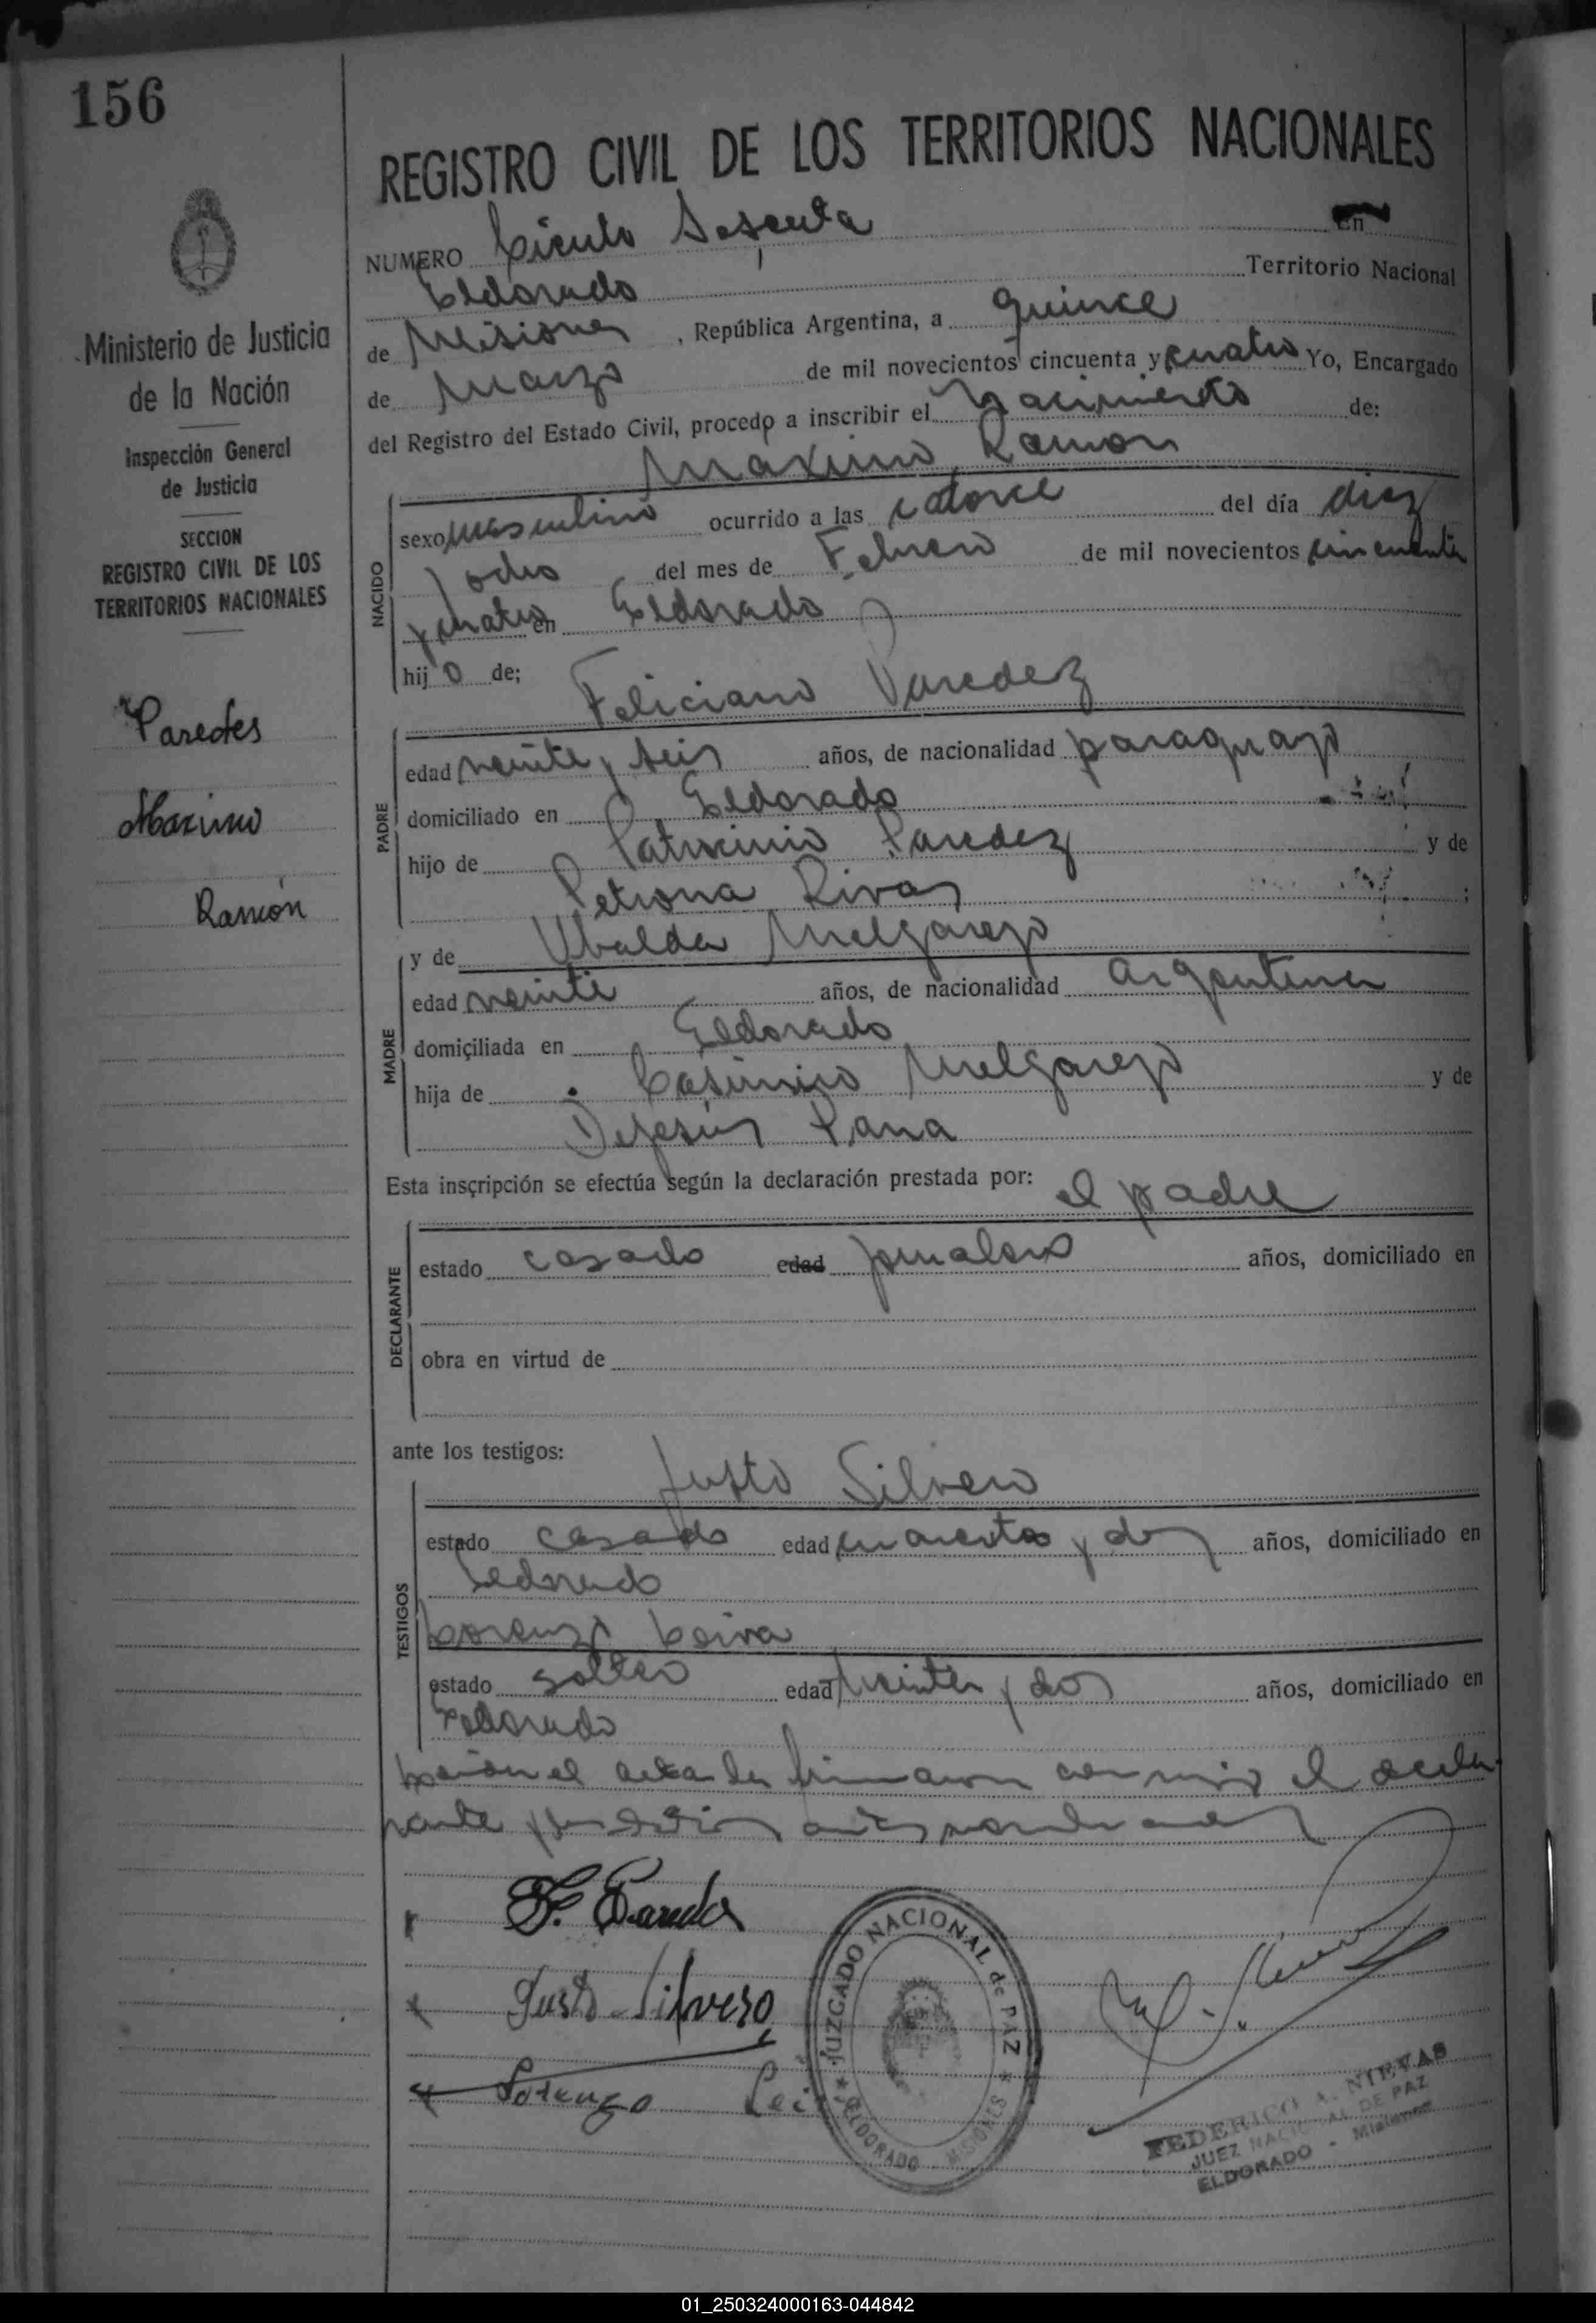 156
REGISTRO CIVIL DE LOS TERRITORIOS NACIONALES
NUMERO Ciento Sesenta En
Eldorado Territorio Nacional
de Misiones, República Argentina, a quince
de Marzo de mil novecientos cincuenta y cuatro Yo, Encargado
del Registro del Estado Civil, procedo a inscribir el Nacimiento de:
Máximo Ramon
Ministerio de Justicia
de la Nación
Inspección General
de Justicia
SECCION
REGISTRO CIVIL DE LOS
TERRITORIOS NACIONALES
Paredes
Maximo
Ramón
NACIDO
sexo masculino ocurrido a las catorce del día diez
y ocho del mes de Febrero de mil novecientos cincuenta
y cuatro en Eldorado
hijo de;
Feliciano Paredez
PADRE
edad veinte y seis años, de nacionalidad paraguayo
domiciliado en Eldorado
hijo de Patrocinio Paredez y de
Petrona Rivas ;
y de Ubalda Melgarejo
MADRE
edad veinte años, de nacionalidad argentina
domiciliada en Eldorado
hija de Casimiro Melgarejo y de
Dejesús
Esta inscripción se efectúa según la declaración prestada por: el padre
DECLARANTE
estado casado edad jornalero años, domiciliado en
obra en virtud de
ante los testigos:
Justo Silvero
TESTIGOS
estado casado edad cuarenta y dos años, domiciliado en
Eldorado
Lorenzo Leiva
estado soltero edad veinte y dos años, domiciliado en
Eldorado
el acta la firmaron con migo el decla-
rante y los testigos antes nombrados
F. Paredes
Justo Silvero
Lorenzo Lei
JUZGADO NACIONAL de PAZ
ELDORADO MISIONES
FEDERICO A. NIEVAS
JUEZ NACIONAL DE PAZ
ELDORADO - Misiones
01_250324000163-044842